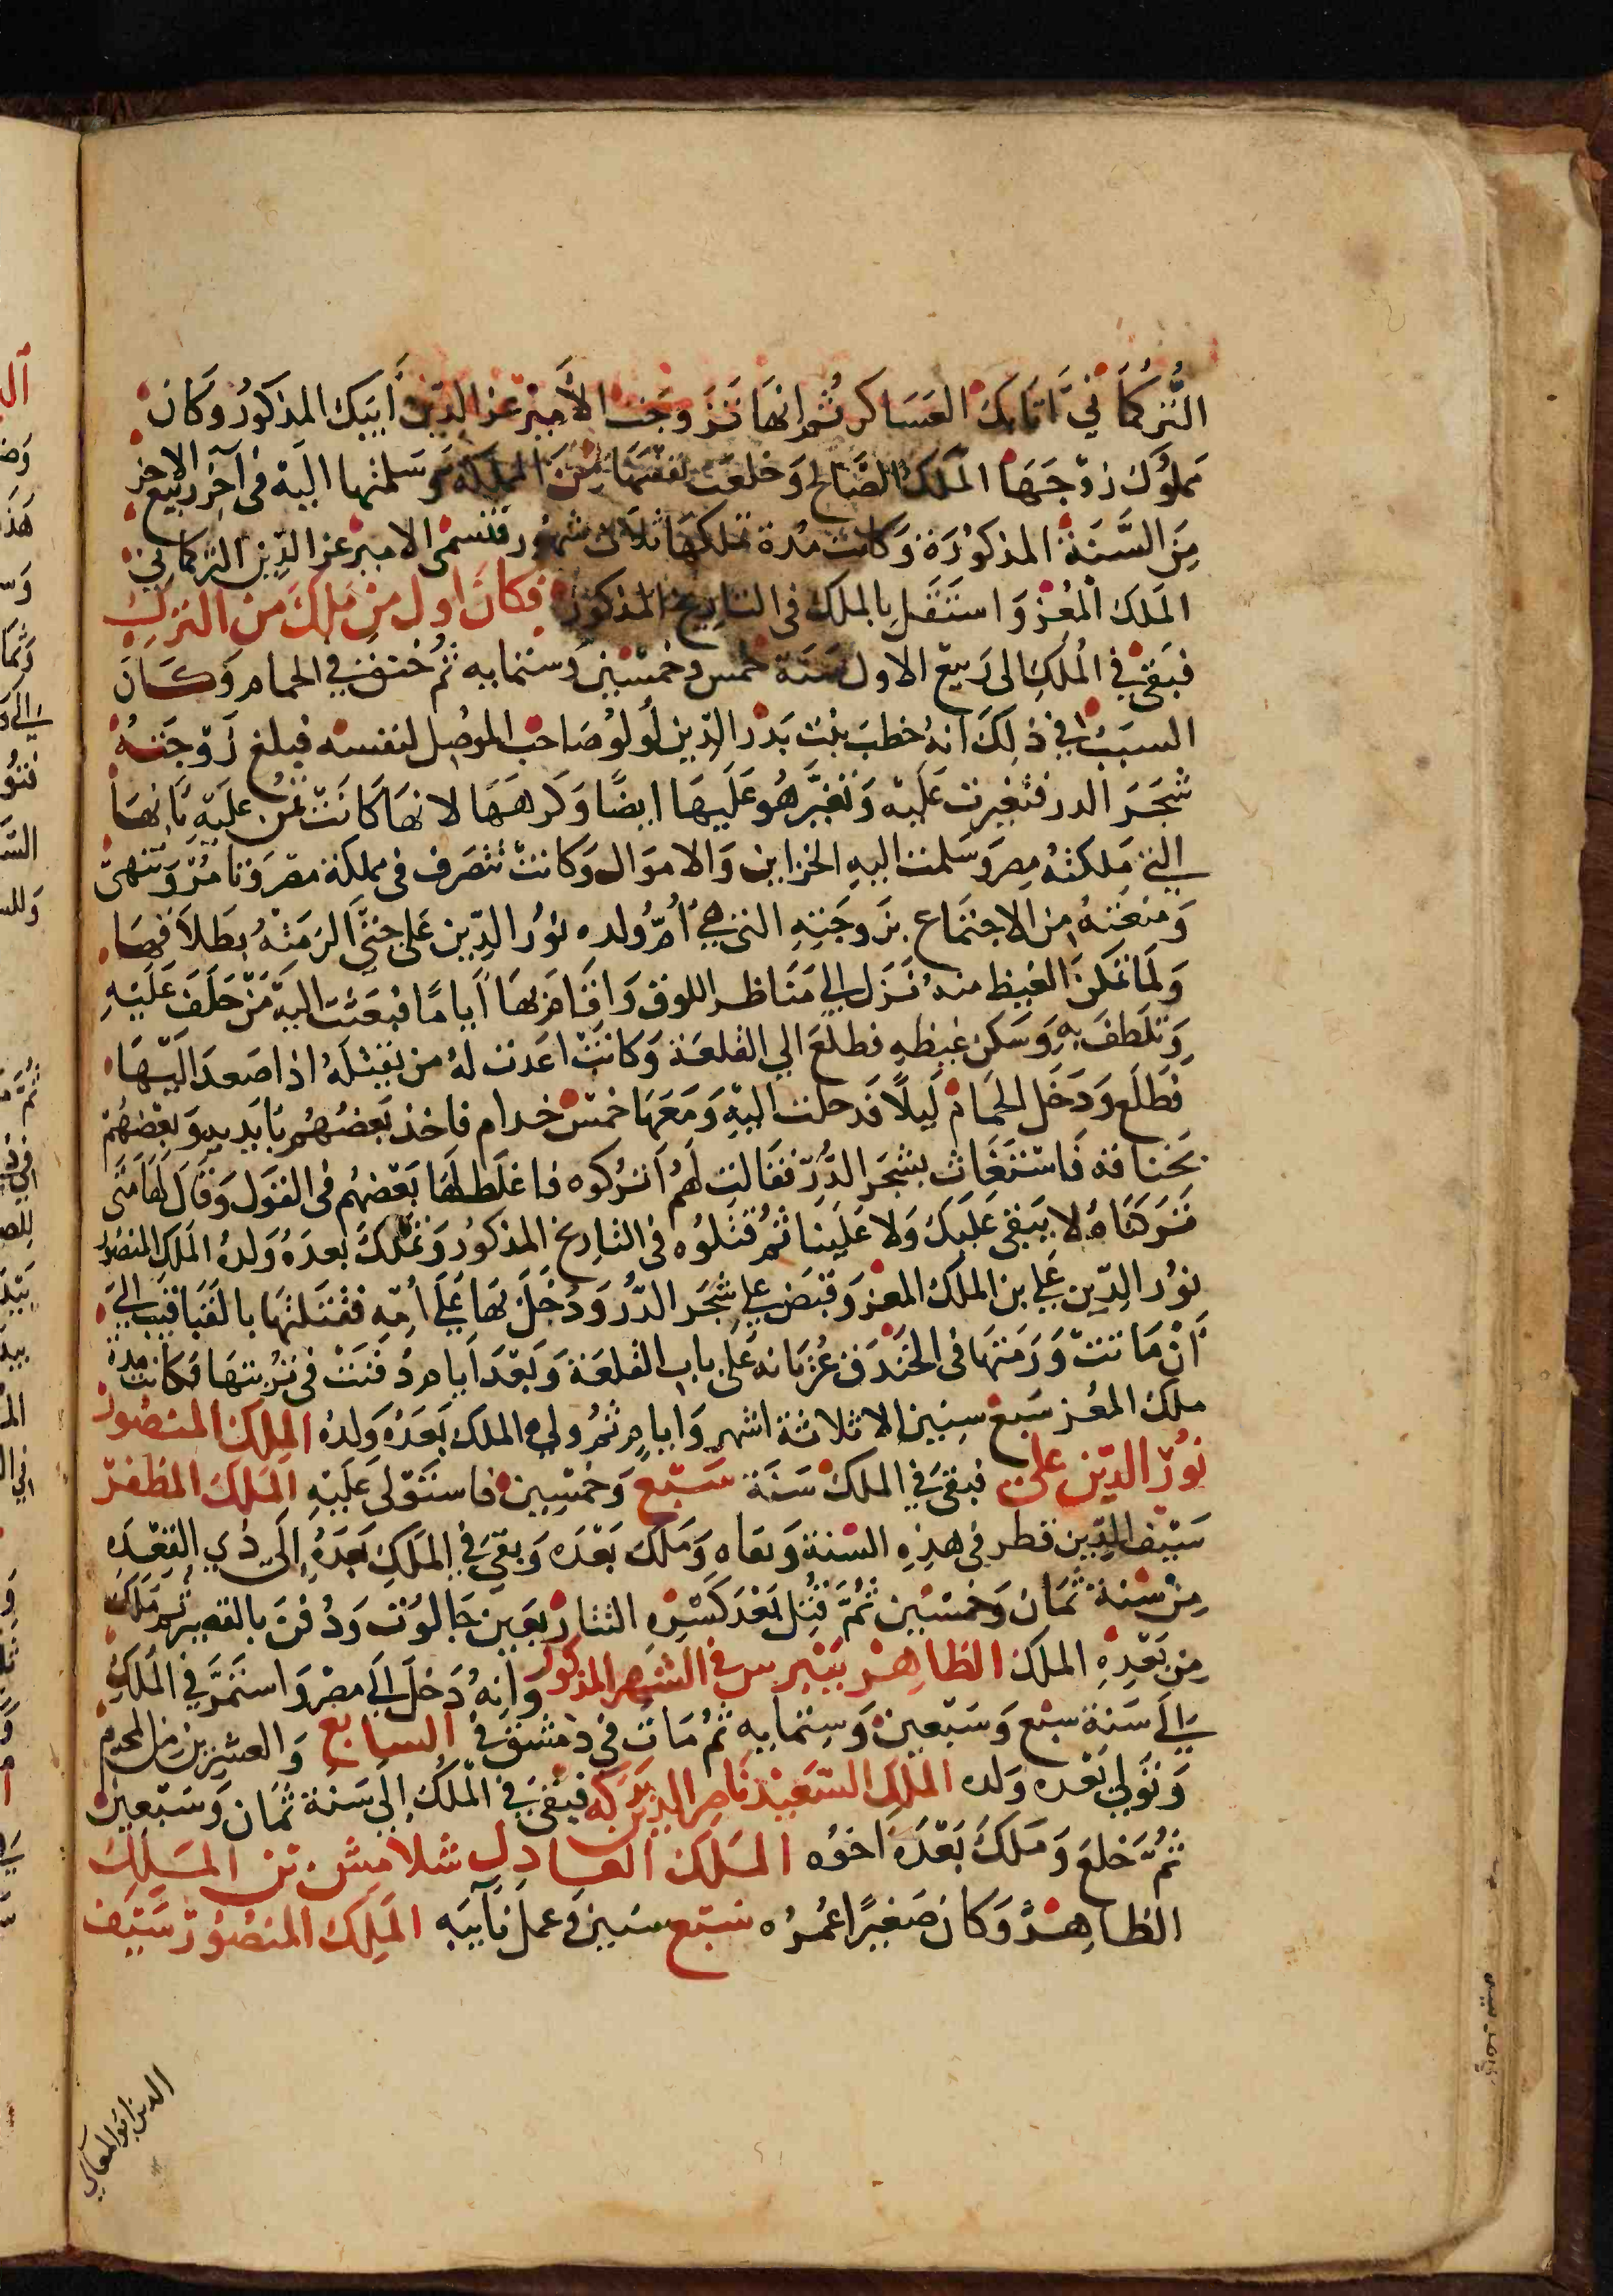 التُركماَنيَ اتابك العسَاكر ثُم انهَا تَزَوجَت الأمير عز الدين أَيبَك المذكوُر وَكَان
مملوُك زوْجَهَا الملَك الصَّالح وَخلعَت نفسَهَا مِنَ المملكة وَسَلمتها اليَه فى آخِر رَبيع الاخر
مِنَ السَّنَة المذكوُرَة وَكَانت مُدة تملكهَا ثلاث شهُور فتسمى الامير عز الدِّين التركماني
الملَك المعُز وَاستَقَل بالملك فى التاريخ المذكور فكانَ اول من مَلك من التركِ
فبَقى في الُملكِ الى رَبيع الاول سَنَة خمس وخمسين وستمايه ثم خنق في الحمام وَكَان
السبَبُ في ذلِكَ انهُ خطبَ بنت بَدرَ الدّين لُولوُ صَاحب الموصِل لنفسه فبلغ زَوْجَتهُ
شجَرَ الدر فتغيرت عَليه وَتغيَّر هُو عَلَيهَا ايضًا وَكرهَهَا لانهَا كَانَتْ تمُن عليَه بَانهَا
التي مَلكتهُ مِصر وَسَلمت اليهِ الخزاين وَالاموَال وَكانتْ تتصَرف فى مملكة مصَر وَتامُر وَتنهى
وَمنعَتهُ من الاجتمَاع بزَوجَتِهِ التي هيُ اُمُّ وُلده نوُر الدِّين عَلى حتَّى الزمَتْهُ بطَلاَقهَا
وَلما تمَكنَ الغيظ منهُ نَزل الي مَنَاظر اللوق وَاقَام بهَا اَيامًا فبعَثت اليه مَنْ حَلفَ عَلَيْهِ
وَتلَطفَ بهِ وَسَكن غيظهِ فطلعَ الي القلعَة وَكانَتْ اعَدت لهُ من يقتلهُ اذا صعدَ اليَهَا
فطَلع وَدَخَل الحمامْ لَيلاً فدخلت اليْهِ وَمَعَهَا خمسْ خدام فاخذ بَعضُهُم بَايديهِ وَبعْضهُمْ
بخناقه فَاسْتَغَاث بشجَر الدُّرِّ فقَالت لهُم اَترُكوه فاغلَط لهَا بَعْضهُم فى القوَل وَقَال لهَا متى
تَرَكنَاهُ لا يبَقى عَليَك وَلا عَليَنا ثم قتَلُوُه فى التاريخ المذكوُر وَتملَّك بعدَهُ وَلدُه الملَك المنصُور
نوُر الدِّين عَلي بن الملَك المعز وَقبَض علي شجَر الدُّر وَدُخِل بهَا عَلَي اُمّهِ فقتَلتهَا بالقبَاقيب الي
اَنْ مَاتتْ وَرَمتهَا فى الخندَق عُريَانه عَلى باب القلعَة وَبَعْدَ اَيام دُفنَتْ فى تُربتهَا فكانت مدة
ملك المعُز سَبع سِنين الا ثلاثة اشهر وَايام ثم ولي الملك بَعدَهُ وَلدُه الملك المنصُور
نوُر الدّين على فبقيَ في الملك سَنَة سَبْع وَخمسِين فاستَوْلى عَلَيْهِ الملَك المظفر
سَيْف الدِّين قطر فى هذِهِ السنة وَنفَاه وَمَلك بَعْدَه وَبقيَ في الملَك بعَدَهُ إلَى ذي القعْدَه
مِن سْنة ثمَان وَخمسْين ثُمَّ قتُل بَعْدَ كَسْرِهِ التتار بعَين جَالوُت وَدُفنَ بالقصير ثم مَلك
مِن بَعْدِهِ الملك الظاهِر بيبرس في الشهر المذكوُر وَانهُ دَخلَ الَي مصْر وَاستمَرَّ في الملَكِ
إلَى سَنة سبْع وَسَبْعين وَسِتمايه ثم مَات في دمَشق في السابع وَالعشرين من المحرم
وَتوَلي بَعْده وَلده الملك السَعيْد نَاصر الدين بَركه فبقيَ في الملُك إلي سَنة ثمان وَسَبعين
ثم خلعَ وَمَلكَ بَعْدَهَ اخوُه الملك العادِل شلامش بن الملَك
الظاهِر وَكانَ صَغيرًا عُمرُه سَبْع سنين وَعمل نآيبَه الملِك المنصُور سَيَف
الدين ابو المعالي